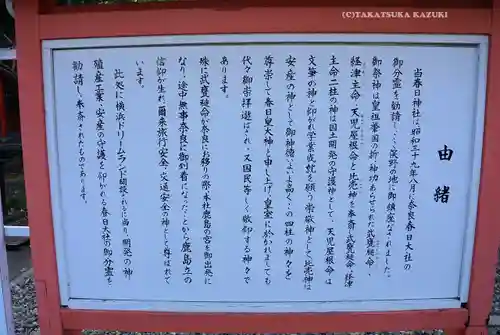 (C)TAKATSUKA KAZUKI
由緒
当春日神社は、昭和三十九年八月に奈良春日大社の
御分霊を勧請し、深野の地に御鎮座なされました。
御祭神は皇祖肇国の折、神功あらせられた武甕槌命・
経津主命・天児屋根命と比売神を奉斎し武甕槌命・経津
主命二柱の神は国土開発の守護神として、天児屋根命は
文筆の神と仰がれ学業成就を願う崇敬神として比売神は
安産の神として御神徳いよいよ高くこの四柱の神々を
尊崇して春日皇大神と申し上げ、皇室に於かれましても
代々御崇拝遊ばされ、又国民等しく敬仰する神々で
あります。
殊に武甕槌命が奈良にお移りの際、本社鹿島の宮を御出発に
なり、途中無事奈良に御到着になったことから鹿島立の
信仰が生れ、爾来旅行安全、交通安全の神として尊ばれて
います。
此処に横浜ドリームランド開設されるに当り、開発の神
殖産工業・安産の守護を仰がれる春日大社の御分霊を
勧請し、奉斎されたものであります。